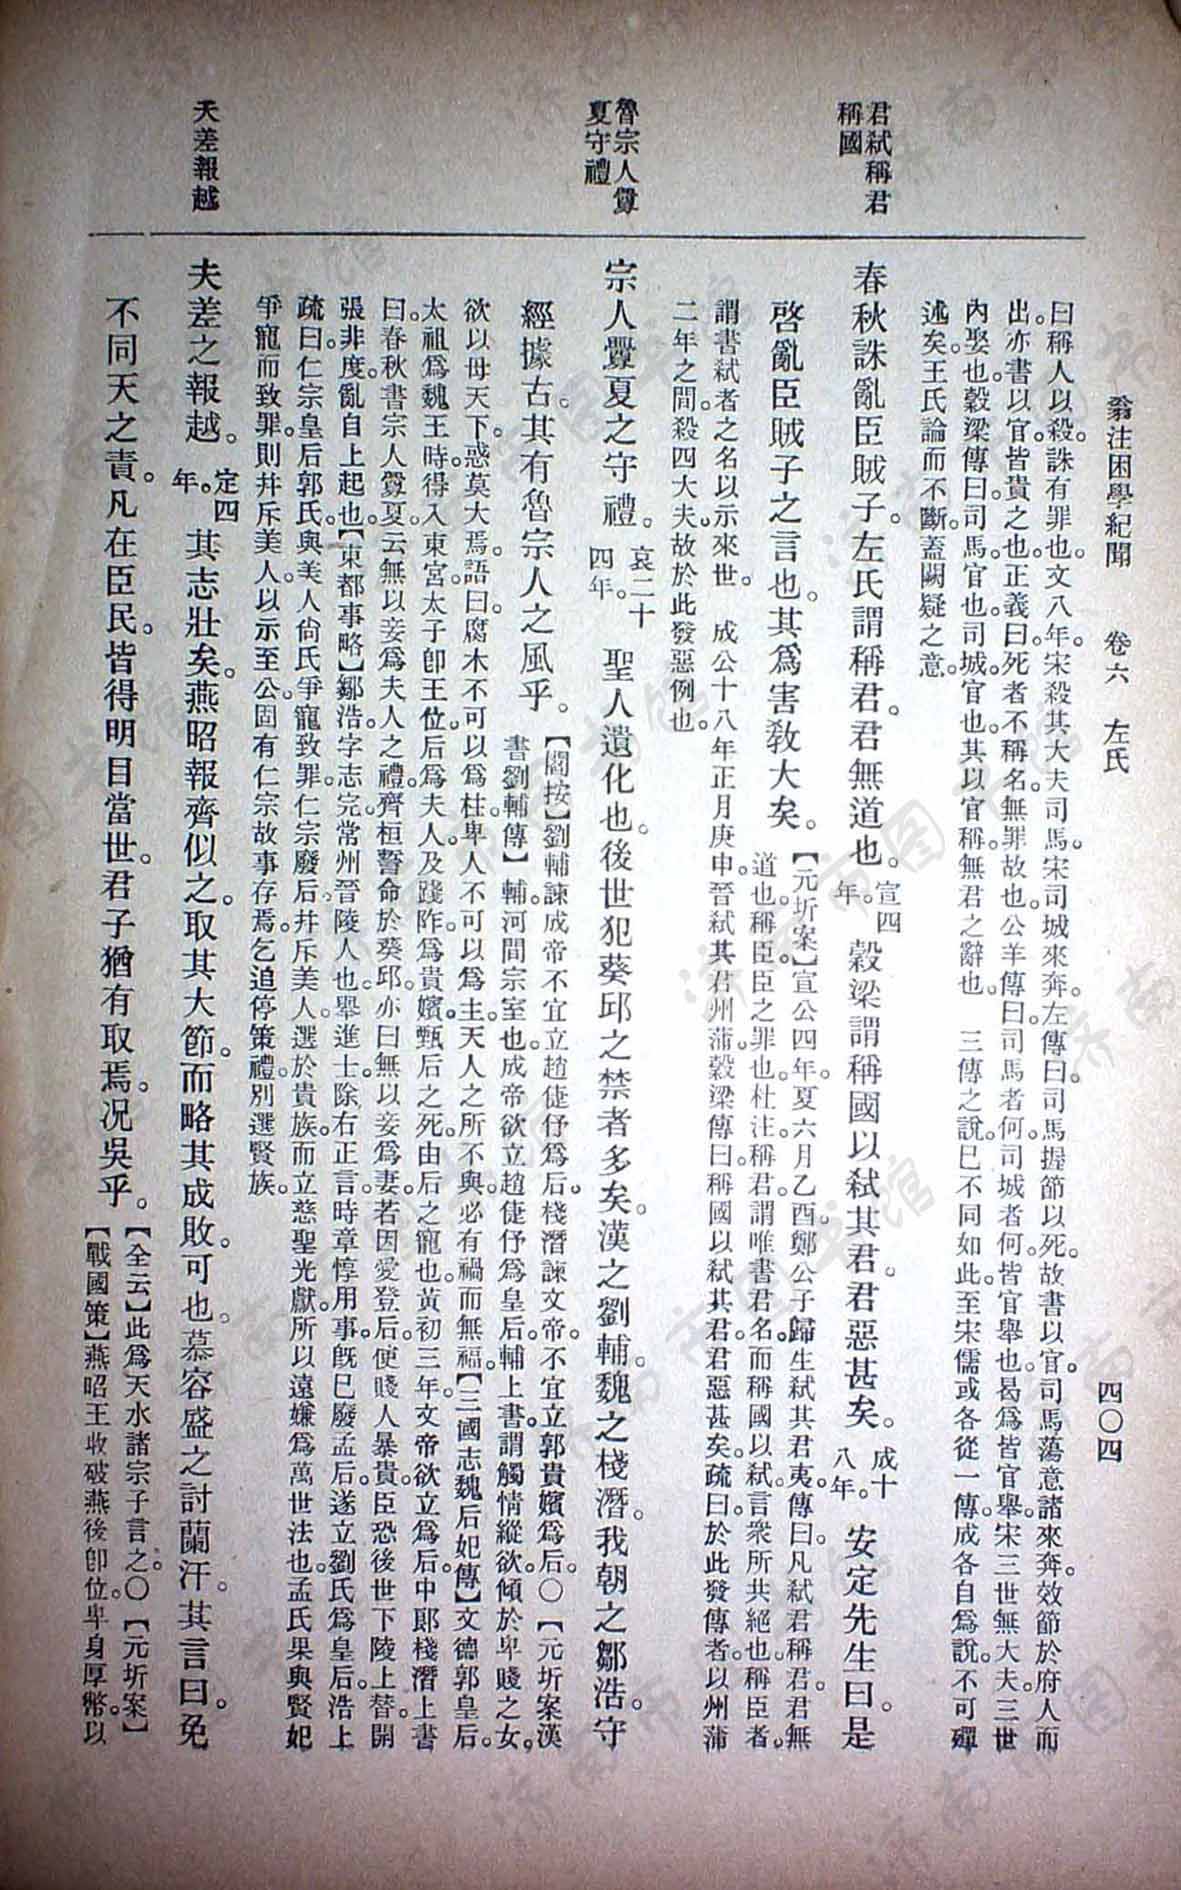 翁注困學紀聞　卷六　左氏　四〇四
君弑稱君
稱國
魯宗人釁
夏守禮
夫差報越
曰稱人以殺。誅有罪也。文八年。宋殺其大夫司馬。宋司城來奔。左傳曰。司馬握節以死。故書以官。司馬蕩意諸來奔。效節於府人而
出。亦書以官。皆貴之也。正義曰。死者不稱名。無罪故也。公羊傳曰。司馬者何。司城者何。皆官舉也。曷爲皆官舉。宋三世無大夫。三世
內娶也。穀梁傳曰。司馬官也。司城。官也。其以官稱。無君之辭也。　三傳之說。已不同如此。至宋儒或各從一傳。成各自爲說。不可殫
述矣。王氏論而不斷。蓋闕疑之意。
春秋誅亂臣賊子。左氏謂稱君。君無道也。宣四年。穀梁謂稱國以弑其君。君惡甚矣。成十八年。安定先生曰。是
啓亂臣賊子之言也。其爲害教大矣。
【元圻案】宣公四年。夏六月乙酉。鄭公子歸生弑其君夷。傳曰。凡弑君稱君。君無
道也。稱臣。臣之罪也。杜注。稱君。謂唯書君名。而稱國以弑。言衆所共絕也。稱臣者。
謂書弑者之名以示來世　成公十八年正月庚申。晉弑其君州蒲。穀梁傳曰。稱國以弑其君。君惡甚矣。疏曰。於此發傳者。以州蒲
二年之間。殺四大夫。故於此發惡例也。
宗人釁夏之守禮。哀二十四年。聖人遺化也。後世犯葵邱之禁者多矣。漢之劉輔。魏之棧潛。我朝之鄒浩。守
經據古。其有魯宗人之風乎。
【閻按】劉輔。諫成帝不宜立趙倢伃爲后。棧潛諫文帝。不宜立郭貴嬪爲后。〇【元圻案漢
書劉輔傳】輔。河間宗室也。成帝欲立趙倢伃爲皇后。輔上書。謂觸情縱欲。傾於卑賤之女。
欲以母天下。惑莫大焉。語曰。腐木不可以爲柱。卑人不可以爲主。天人之所不與。必有禍而無福。【三國志魏后妃傳】文德郭皇后。
太祖爲魏王時。得入東宮。太子卽王位。后爲夫人。及踐阼。爲貴嬪。甄后之死。由后之寵也。黃初三年。文帝欲立爲后。中郎棧潛上書
曰。春秋書宗人釁夏。云無以妾爲夫人之禮。齊桓誓命於葵邱。亦曰。無以妾爲妻。若因愛登后。使賤人暴貴。臣恐後世下陵上替。開
張非度。亂自上起也。【東都事略】鄒浩。字志完。常州晉陵人也。舉進士。除右正言。時章惇用事。旣已廢孟后。遂立劉氏爲皇后。浩上
疏曰。仁宗皇后郭氏。與美人尙氏爭寵致罪。仁宗廢后。幷斥美人。選於貴族。而立慈聖光獻。所以遠嫌爲萬世法也。孟氏果與賢妃
爭寵而致罪。則幷斥美人。以示至公。固有仁宗故事存焉。乞追停策禮。別選賢族。
夫差之報越。定四年。其志壯矣。燕昭報齊似之。取其大節。而略其成敗。可也。慕容盛之討蘭汗。其言曰。免
不同天之責。凡在臣民。皆得明目當世。君子猶有取焉。况吳乎。
【全云】此爲天水諸宗子言之。〇【元圻案】
【戰國策】燕昭王收破燕後卽位。卑身厚幣。以